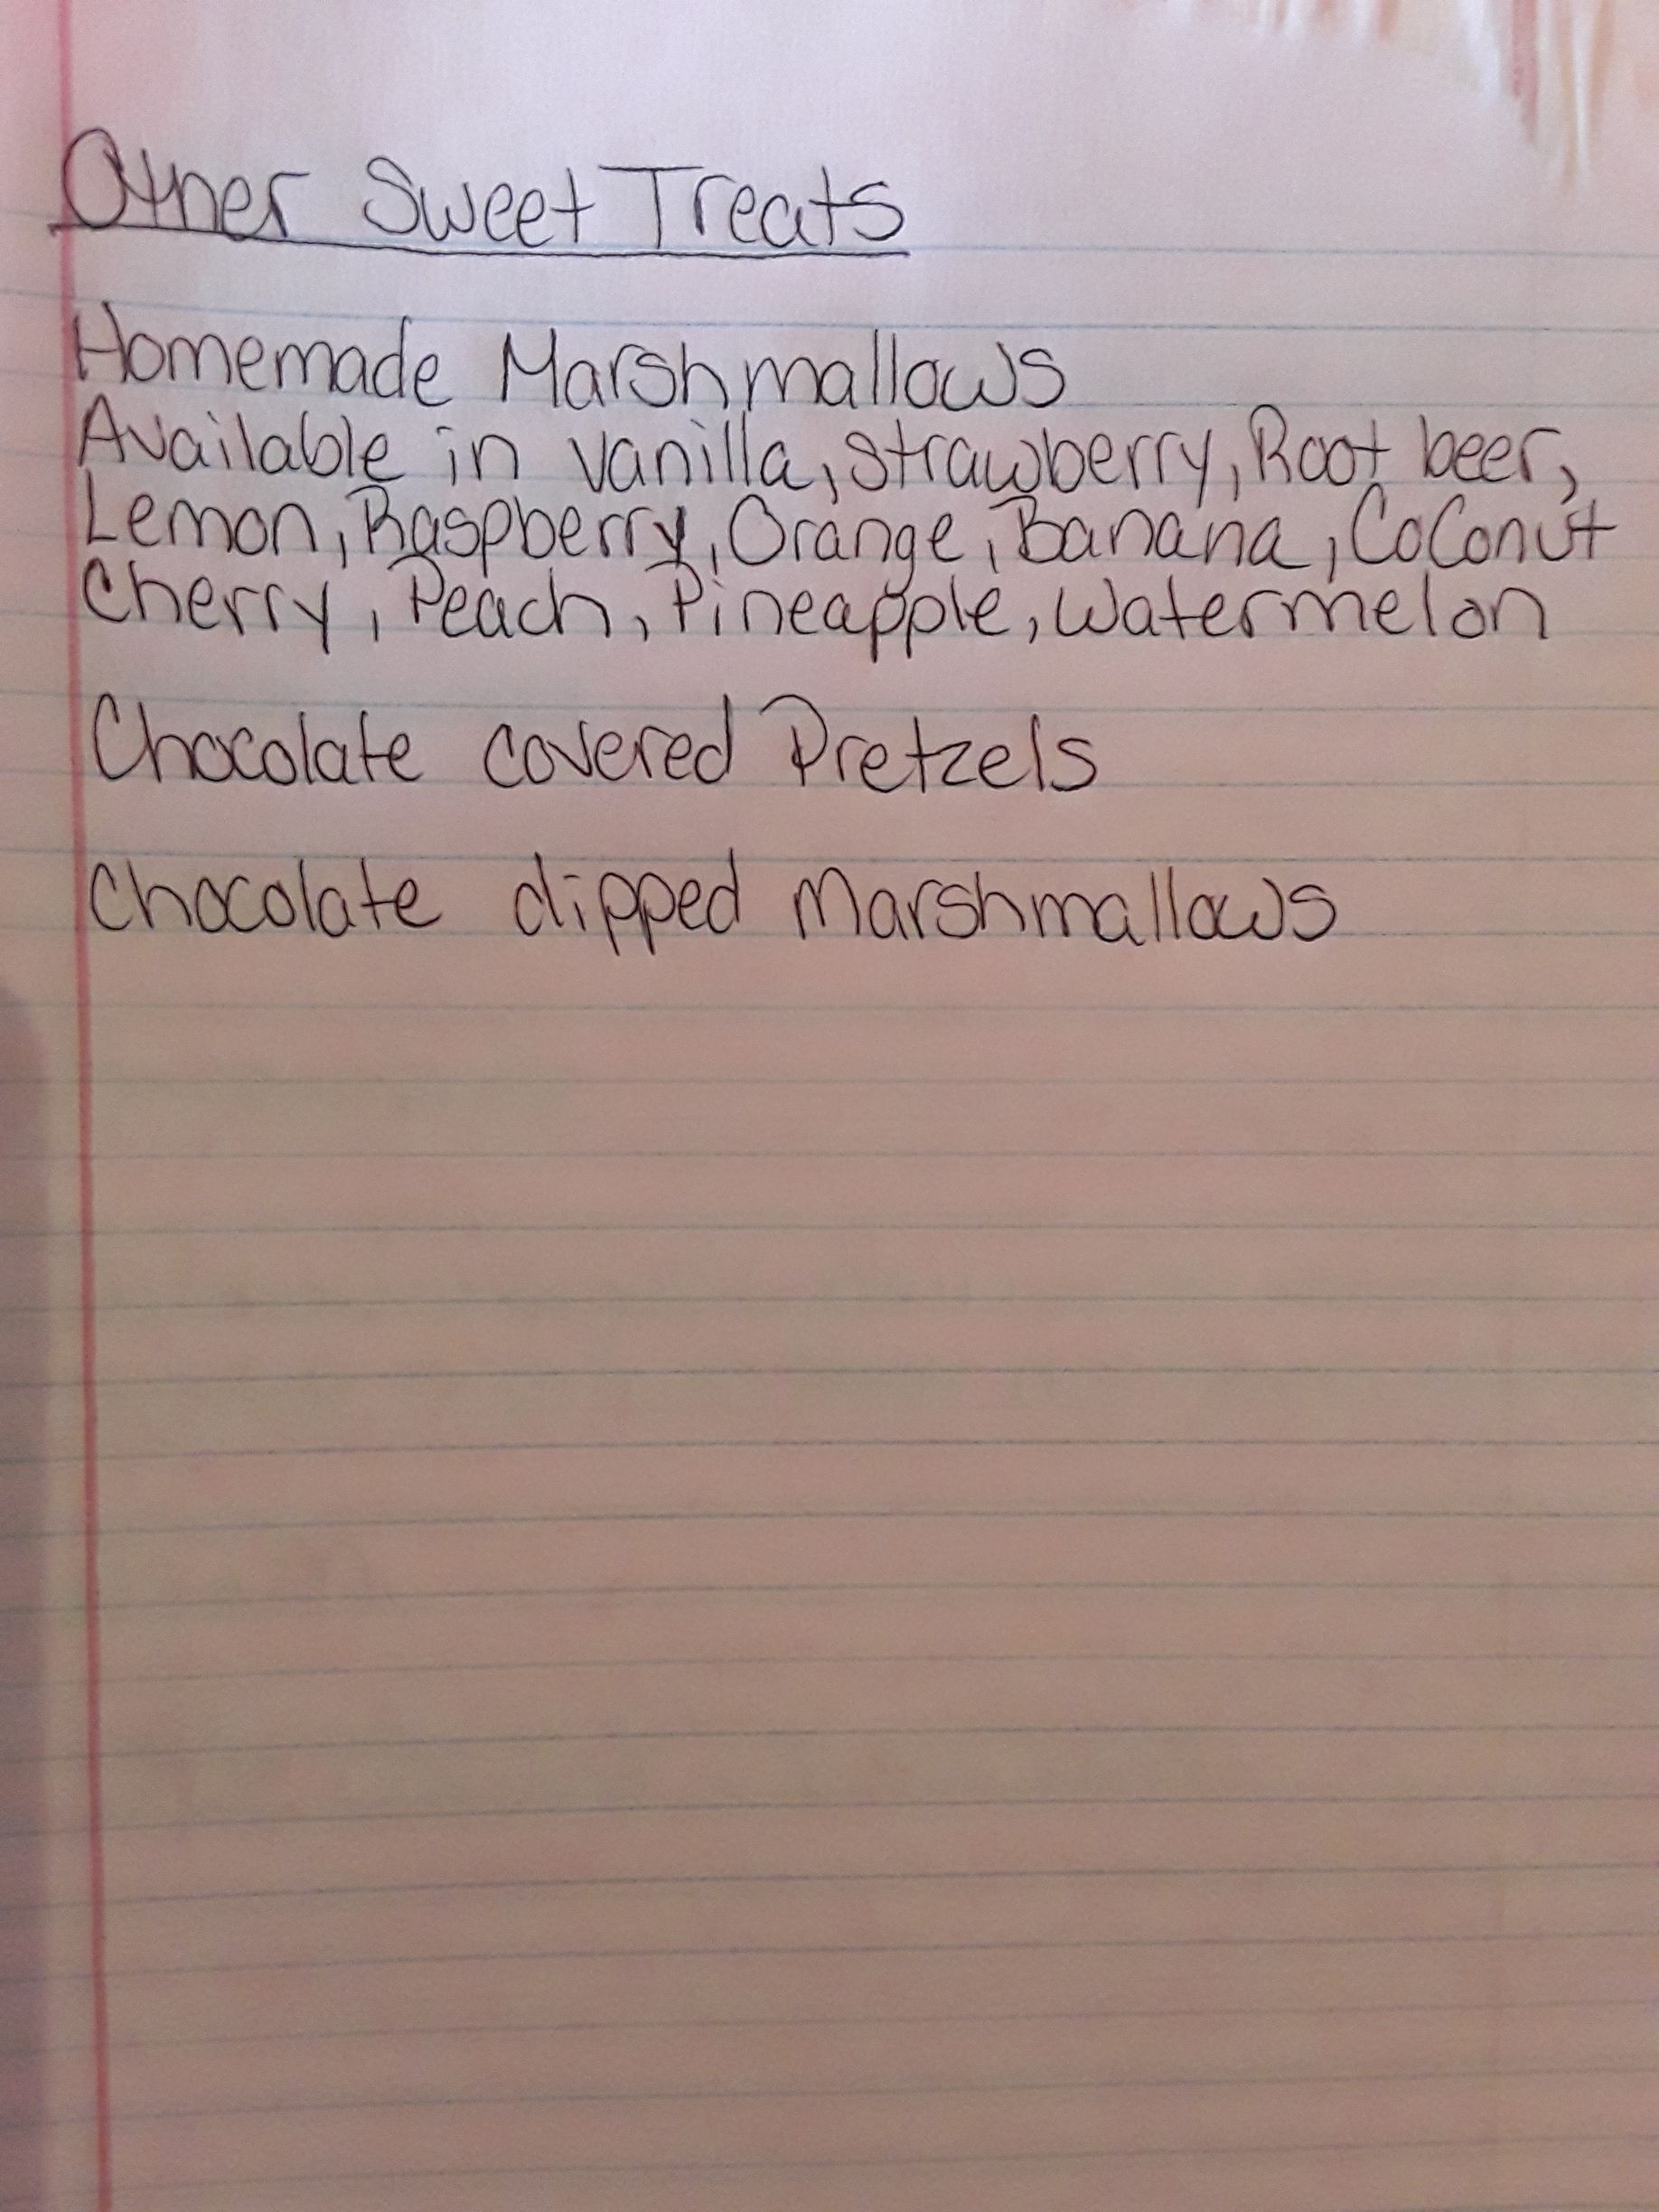 Other Sweet Treats
Homemade Marshmallows
Available in vanilla, strawberry, Root beer,
Lemon, Raspberry, Orange, Banana, CoConut
Cherry, Peach, Pineapple, Watermelon
Chocolate covered Pretzels
Chocolate dipped Marshmallows